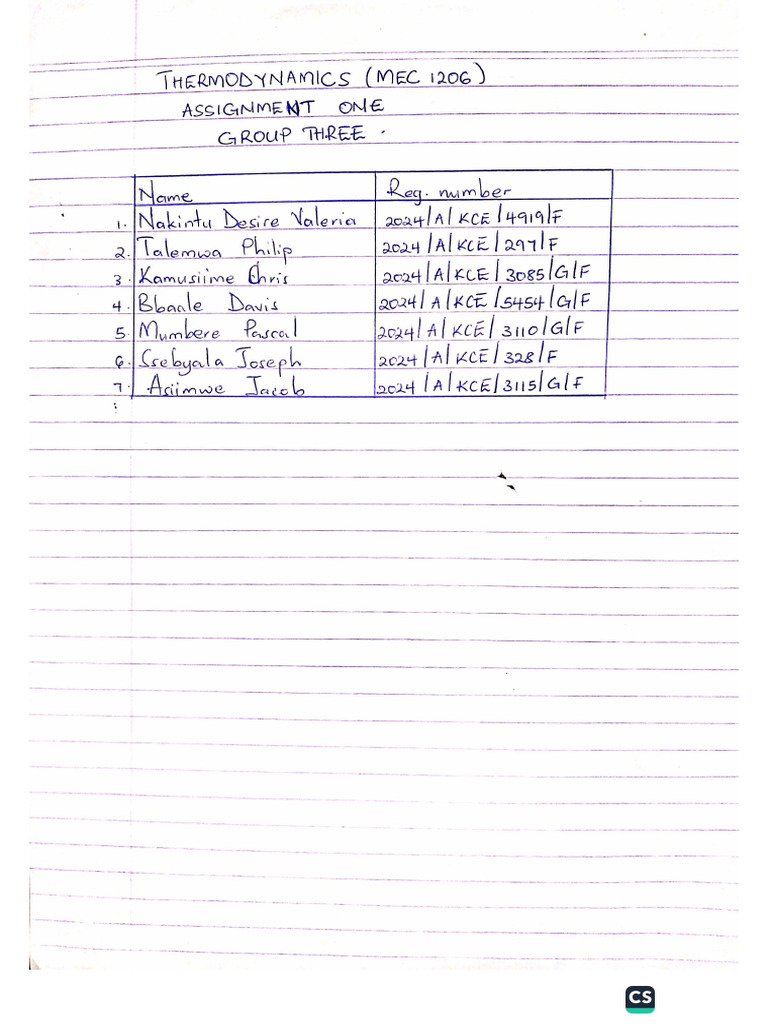 THERMODYNAMICS (MEC 1206)
ASSIGNMENT ONE
GROUP THREE.
Name Reg. number
1. Nakintu Desire Valeria 2024/A/KCE/4919/F
2. Talemwa Philip 2024/A/KCE/297/F
3. Kamusiime Chris 2024/A/KCE/3085/G/F
4. Bbaale Davis 2024/A/KCE/5454/G/F
5. Mumbere Pascal 2024/A/KCE/3110/G/F
6. Ssebyala Joseph 2024/A/KCE/328/F
7. Asiimwe Jacob 2024/A/KCE/3115/G/F
CS